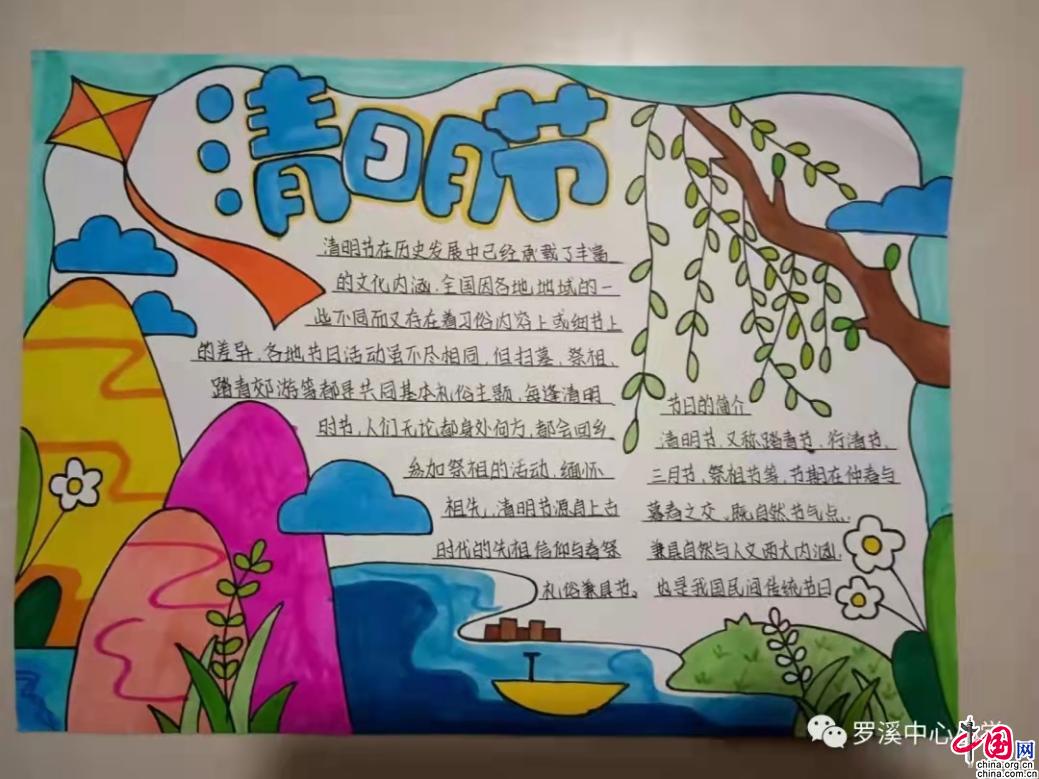 清明节
清明节在历史发展中已经承载了丰富
的文化内涵.全国因各地地域的一
些不同而又存在着习俗内容上或细节上
的差异,各地节日活动虽不尽相同,但扫墓,祭祖、
踏青郊游等都是共同基本礼俗主题,每逢清明
时节,人们无论都身处何方,都会回乡
参加祭祖的活动、缅怀
祖先,清明节源自上古
时代的先祖信仰与春祭
礼俗兼具节。
节日的简介
清明节,又称踏青节、行清节、
三月节、祭祖节等,节期在仲春与
暮春之交,既自然节气点、
兼具自然与人文两大内涵,
也是我国民间传统节日
罗溪中心小学
中国网
china.org.cn
china.com.cn